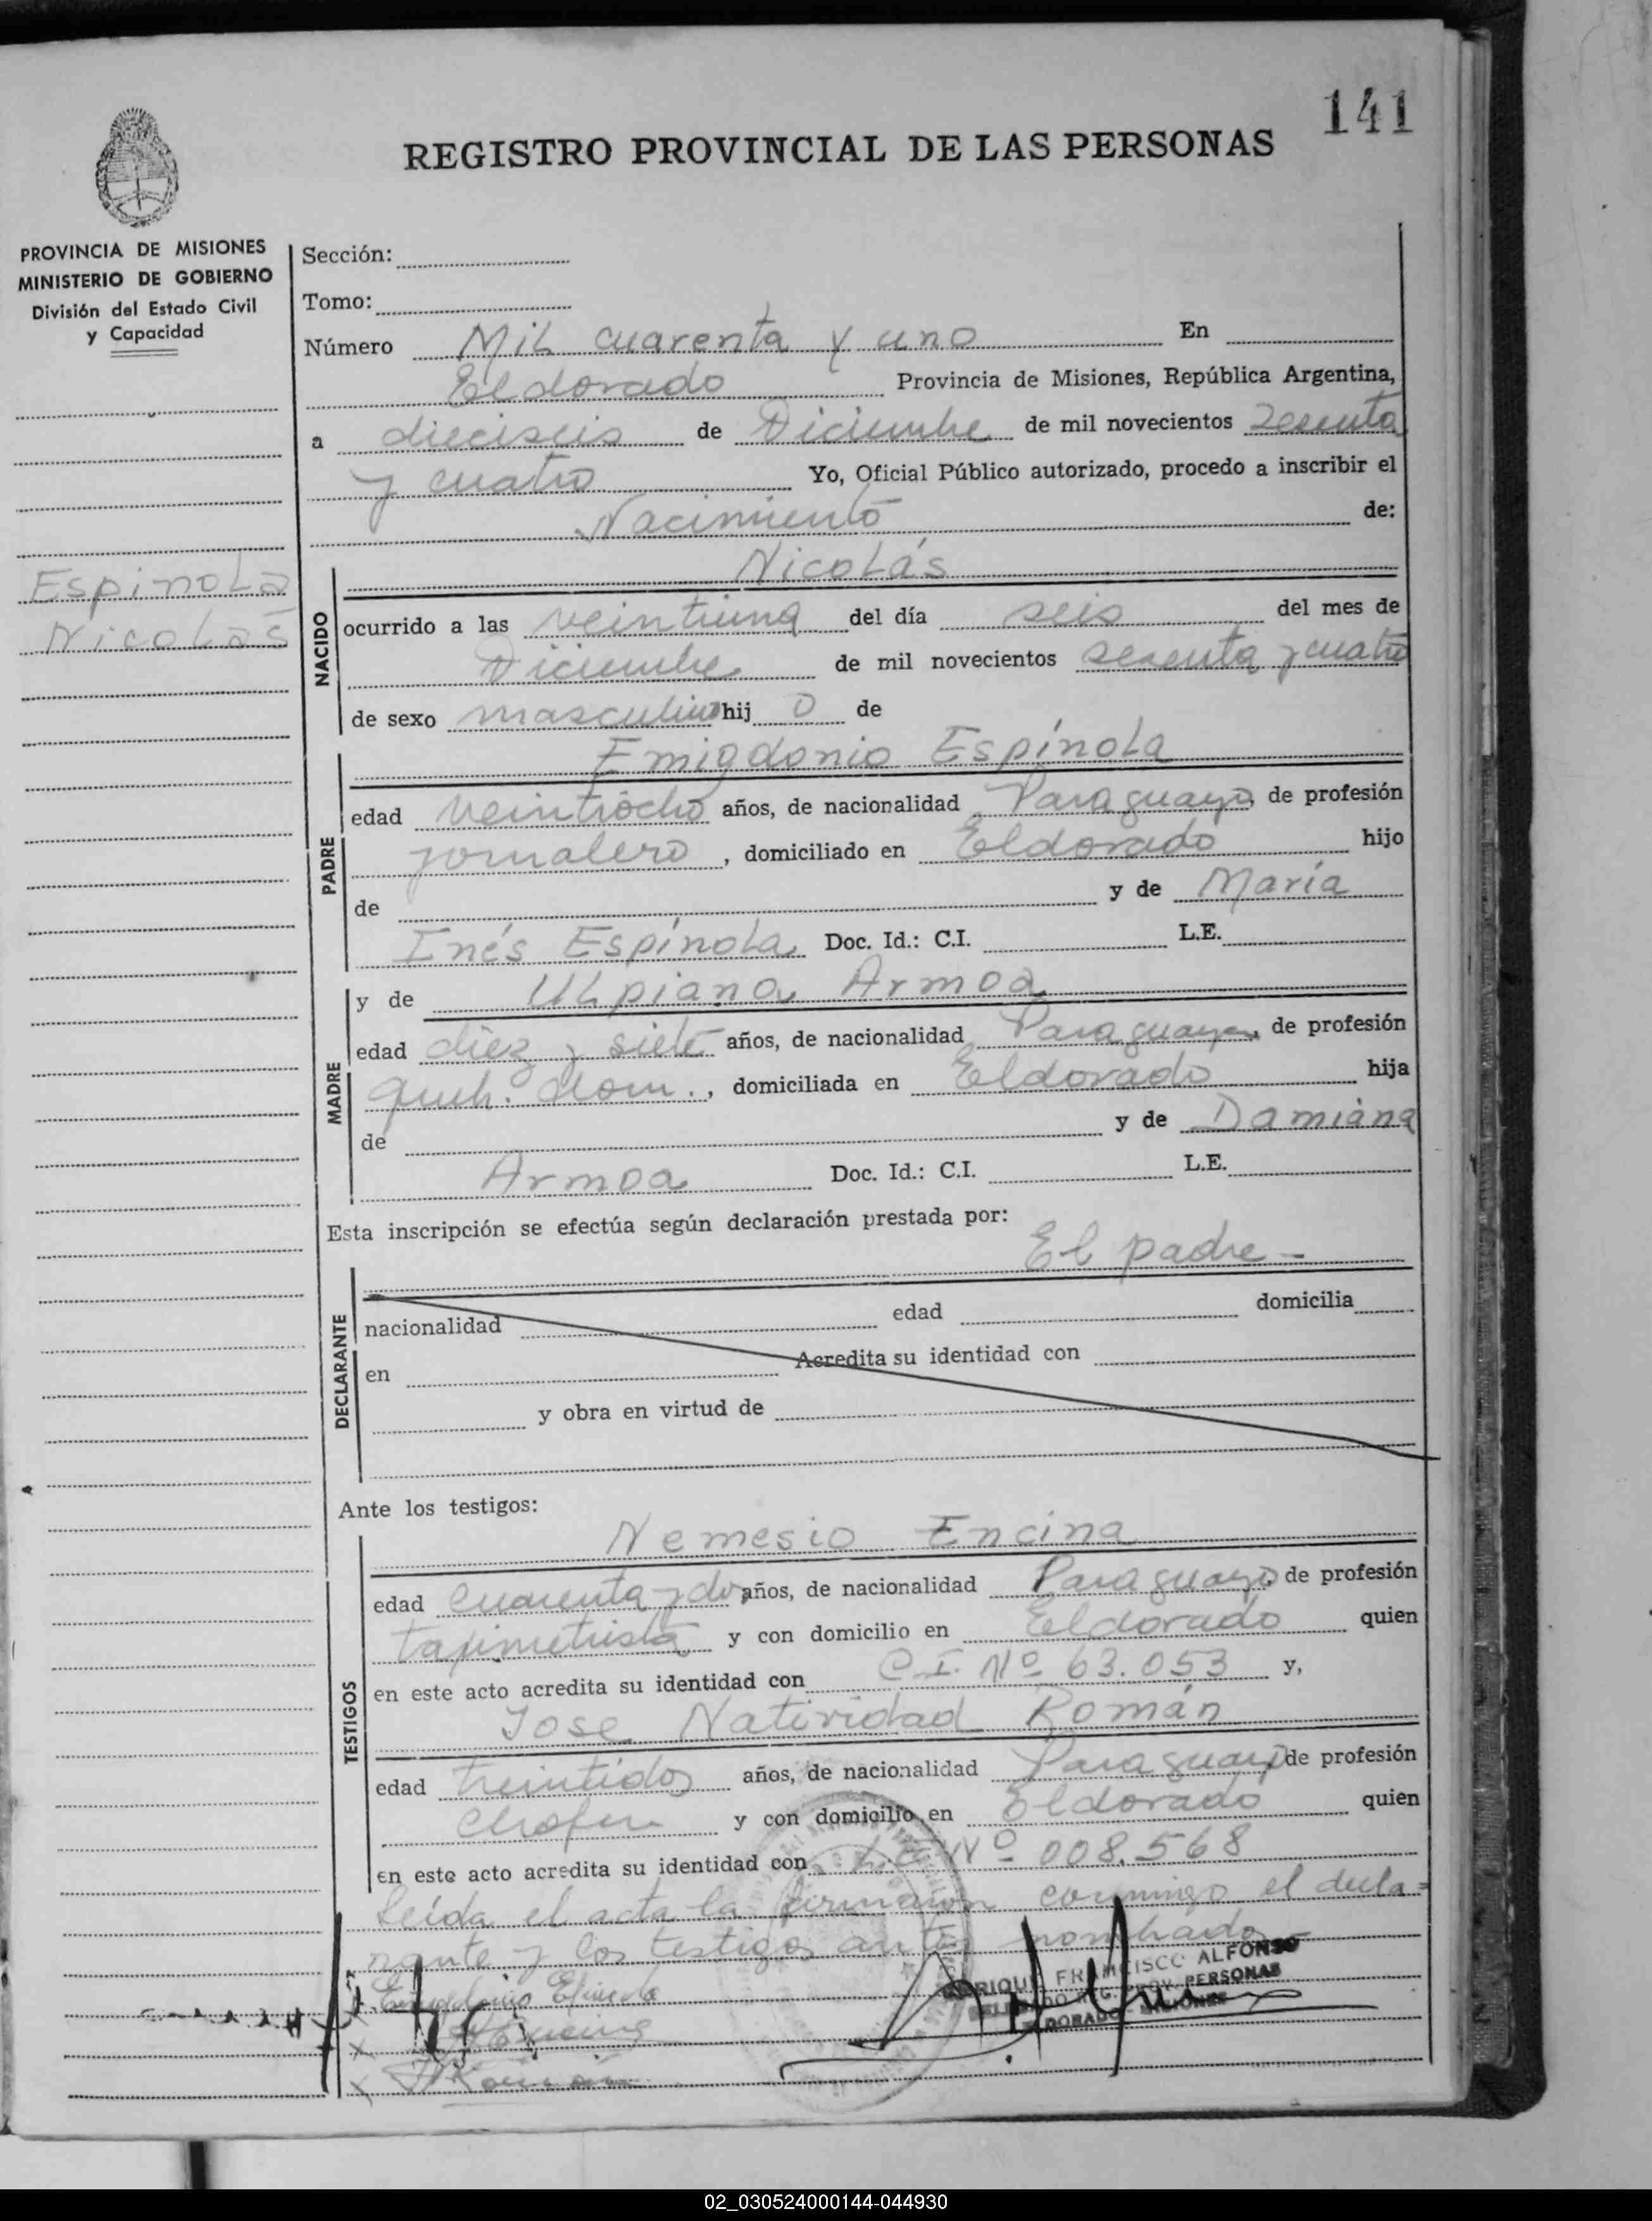 141
REGISTRO PROVINCIAL DE LAS PERSONAS
PROVINCIA DE MISIONES
MINISTERIO DE GOBIERNO
División del Estado Civil
y Capacidad
Espínola
Nicolás
Sección:
Tomo:
Número Mil cuarenta y uno En
Eldorado Provincia de Misiones, República Argentina,
a dieciseis de Diciembre de mil novecientos sesenta
y cuatro Yo, Oficial Público autorizado, procedo a inscribir el
Nacimiento de:
NACIDO
Nicolás
ocurrido a las veintiuna del día seis del mes de
Diciembre de mil novecientos sesenta y cuatro
de sexo masculino hij o de
PADRE
Emigdonio Espínola
edad veintiocho años, de nacionalidad Paraguaya, de profesión
jornalero, domiciliado en Eldorado hijo
de y de María
Inés Espínola Doc. Id.: C.I. L.E.
MADRE
y de Ulpiana Armoa
edad diez y siete años, de nacionalidad Paraguaya, de profesión
queh. dom., domiciliada en Eldorado hija
de y de Damiana
Armoa Doc. Id.: C.I. L.E.
Esta inscripción se efectúa según declaración prestada por:
El padre -
DECLARANTE
nacionalidad edad domicilia
en Acredita su identidad con
y obra en virtud de
Ante los testigos:
TESTIGOS
Nemesio Encina
edad cuarenta y dos años, de nacionalidad Paraguaya de profesión
taximetrista y con domicilio en Eldorado quien
en este acto acredita su identidad con C.I. Nº 63.053 y,
Jose Natividad Román
edad treintidos años, de nacionalidad Paraguaya de profesión
Chofer y con domicilio en Eldorado quien
en este acto acredita su identidad con Nº 008.568
Leída el acta la firmaron conmigo el decla=
rante y los testigos antes nombrado
FRANCISCO ALFONSO
REG. PROV. PERSONAS
ELDORADO - MISIONES
x Emigdonio Espínola
x Encina
x Román
02_030524000144-044930